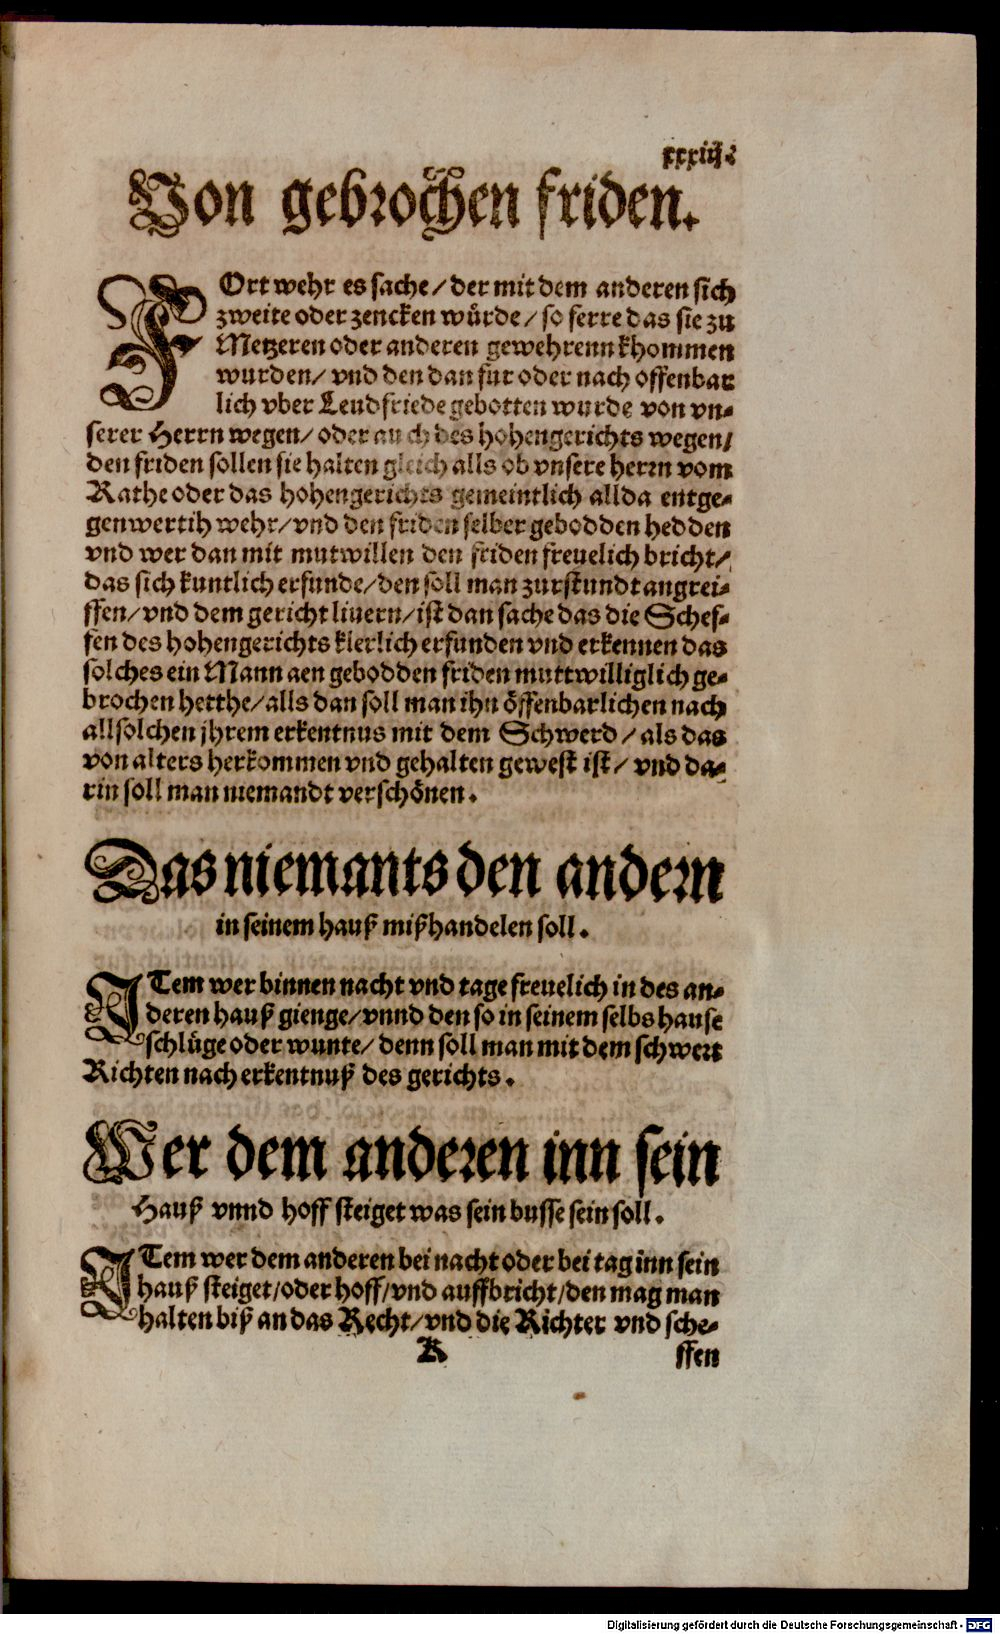 xxxiij.
Von gebrochen friden.
FOrt wehr es sache / der mit dem anderen sich
zweite oder zencken würde / so ferre das sie zu
Metzeren oder anderen gewehrenn khommen
wurden / vnd den dan fur oder nach offenbar
lich vber Leudfriede gebotten wurde von vn-
serer Herrn wegen / oder auch des hohengerichts wegen /
den friden sollen sie halten gleich alls ob vnsere herrn vom
Rathe oder das hohengerichts gemeintlich allda entge-
genwertih wehr / vnd den friden selber gebodden hedden
vnd wer dan mit mutwillen den friden freuelich bricht /
das sich kuntlich erfunde / den soll man zurstundt angrei-
ffen / vnd dem gericht liuern / ist dan sache das die Schef-
fen des hohengerichts klerlich erfunden vnd erkennen das
solches ein Mann aen gebodden friden muttwilliglich ge-
brochen hetthe / alls dan soll man ihn öffenbarlichen nach
allsolchen jhrem erkentnus mit dem Schwerd / als das
von alters herkommen vnd gehalten gewest ist / vnd da-
rin soll man niemandt verschönen.
Das niemants den andern
in seinem hauß mißhandelen soll.
ITem wer binnen nacht vnd tage freuelich in des an-
deren hauß gienge / vnnd den so in seinem selbs hause
schlüge oder wunte / denn soll man mit dem schwert
Richten nach erkentnuß des gerichts.
Wer dem anderen inn sein
Hauß vnnd hoff steiget was sein busse sein soll.
ITem wer dem anderen bei nacht oder bei tag inn sein
hauß steiget / oder hoff / vnd auffbricht / den mag man
halten biß an das Recht / vnd die Richter vnd sche-
K ffen
Digitalisierung gefördert durch die Deutsche Forschungsgemeinschaft - DFG